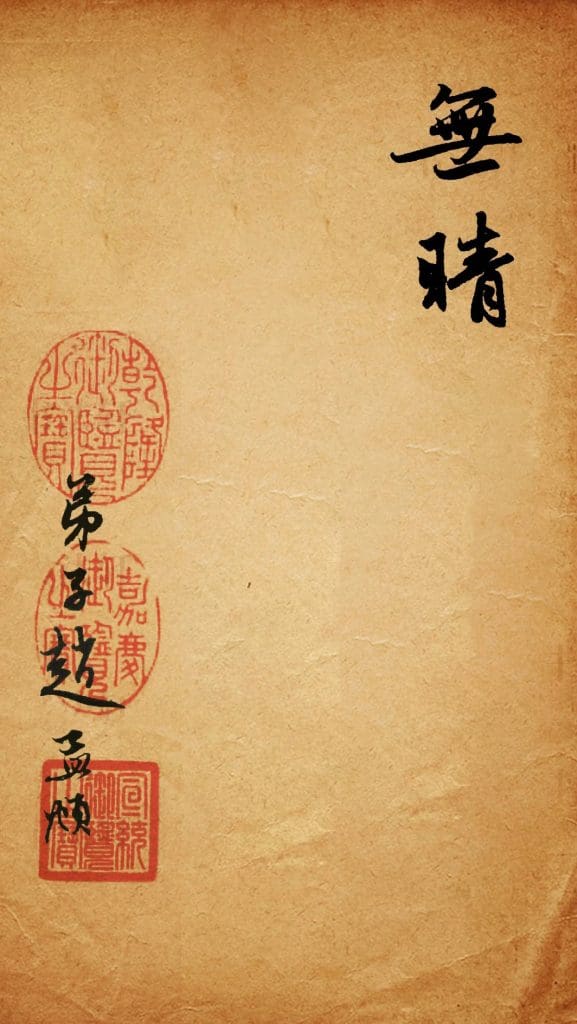 無晴
乾隆御覽之寶
弟子趙孟頫
嘉慶御覽之寶
宣統御覽之寶